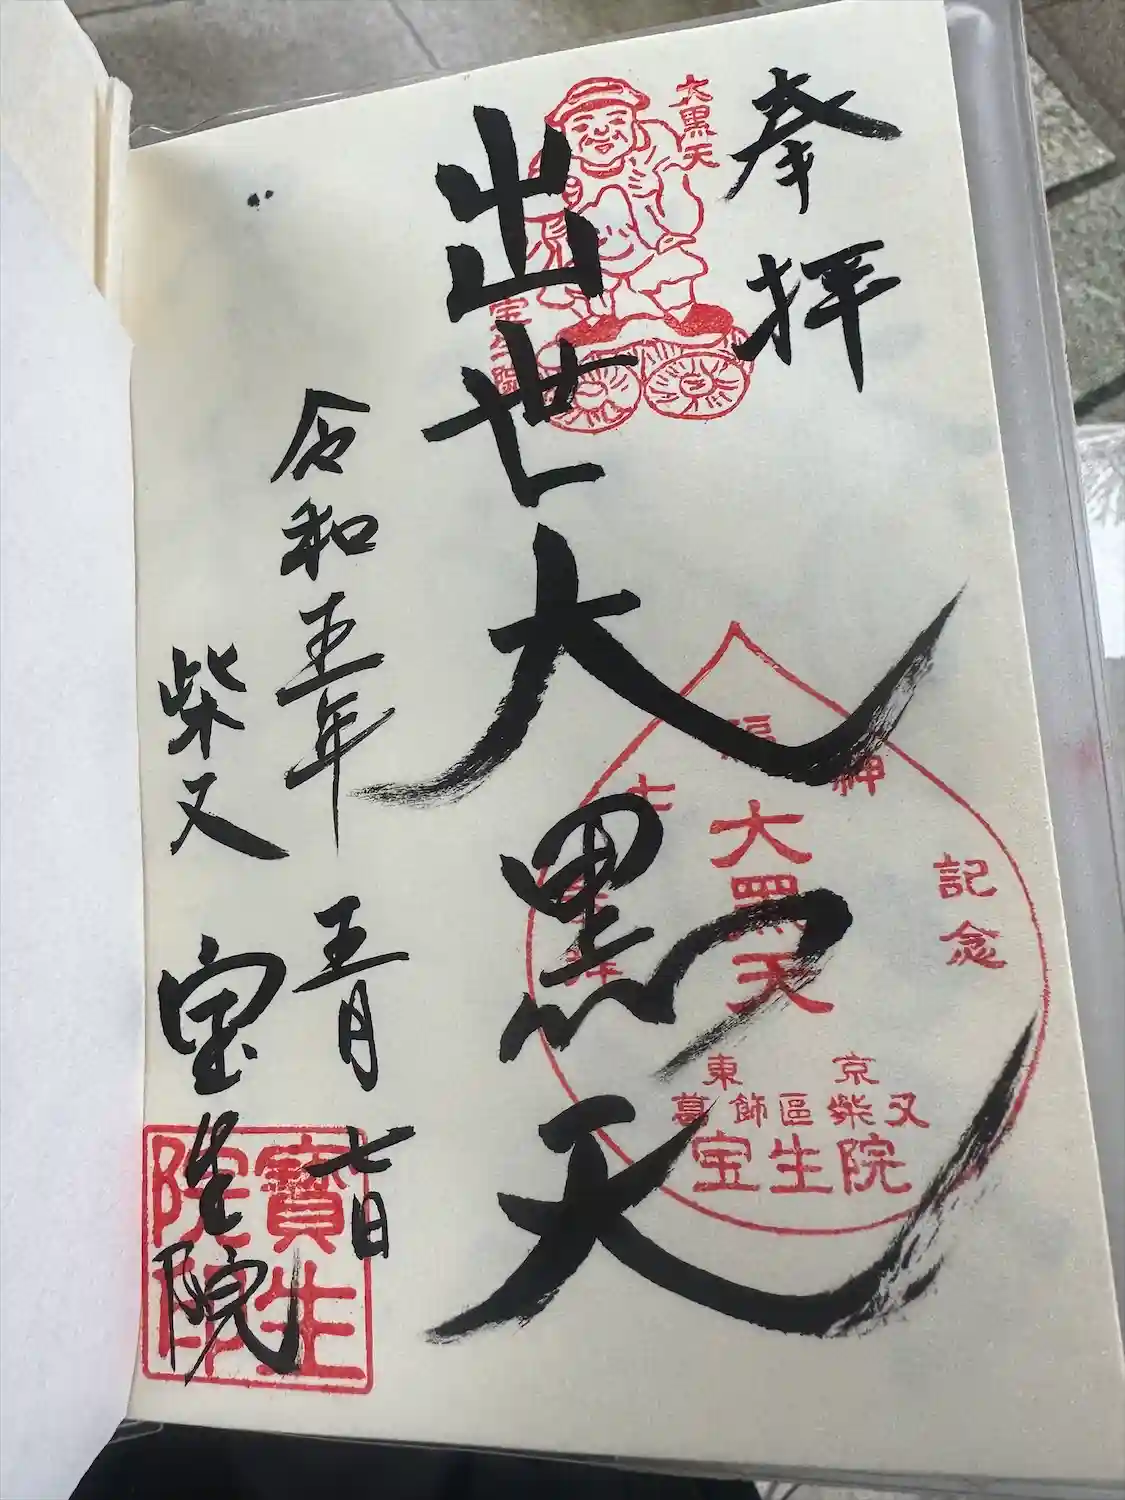 奉拝
大黒天
宝生院
出世大黒天
七福神
記念
大黒天
東京
葛飾區柴又
宝生院
令和五年 五月 七日
柴又 宝生院
寶生院印